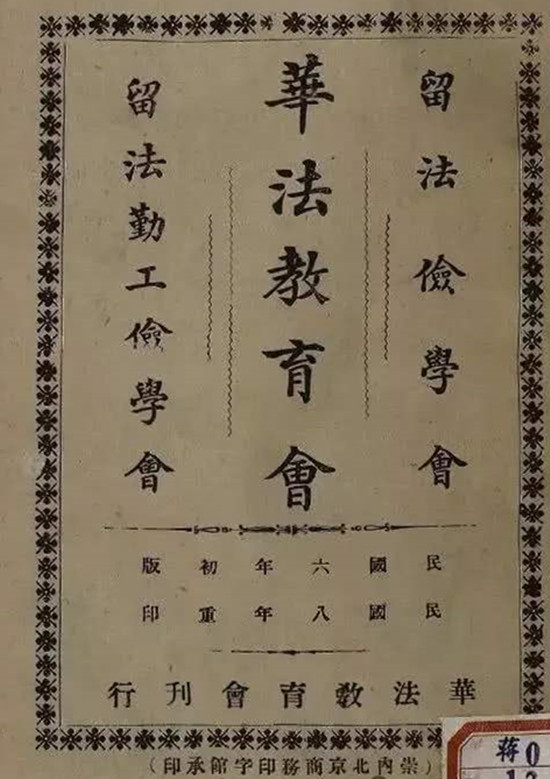 留法儉學會
華法教育會
留法勤工儉學會
民國六年初版
民國八年重印
華法教育會刊行
(崇內北京商務印字館承印)
蒋0